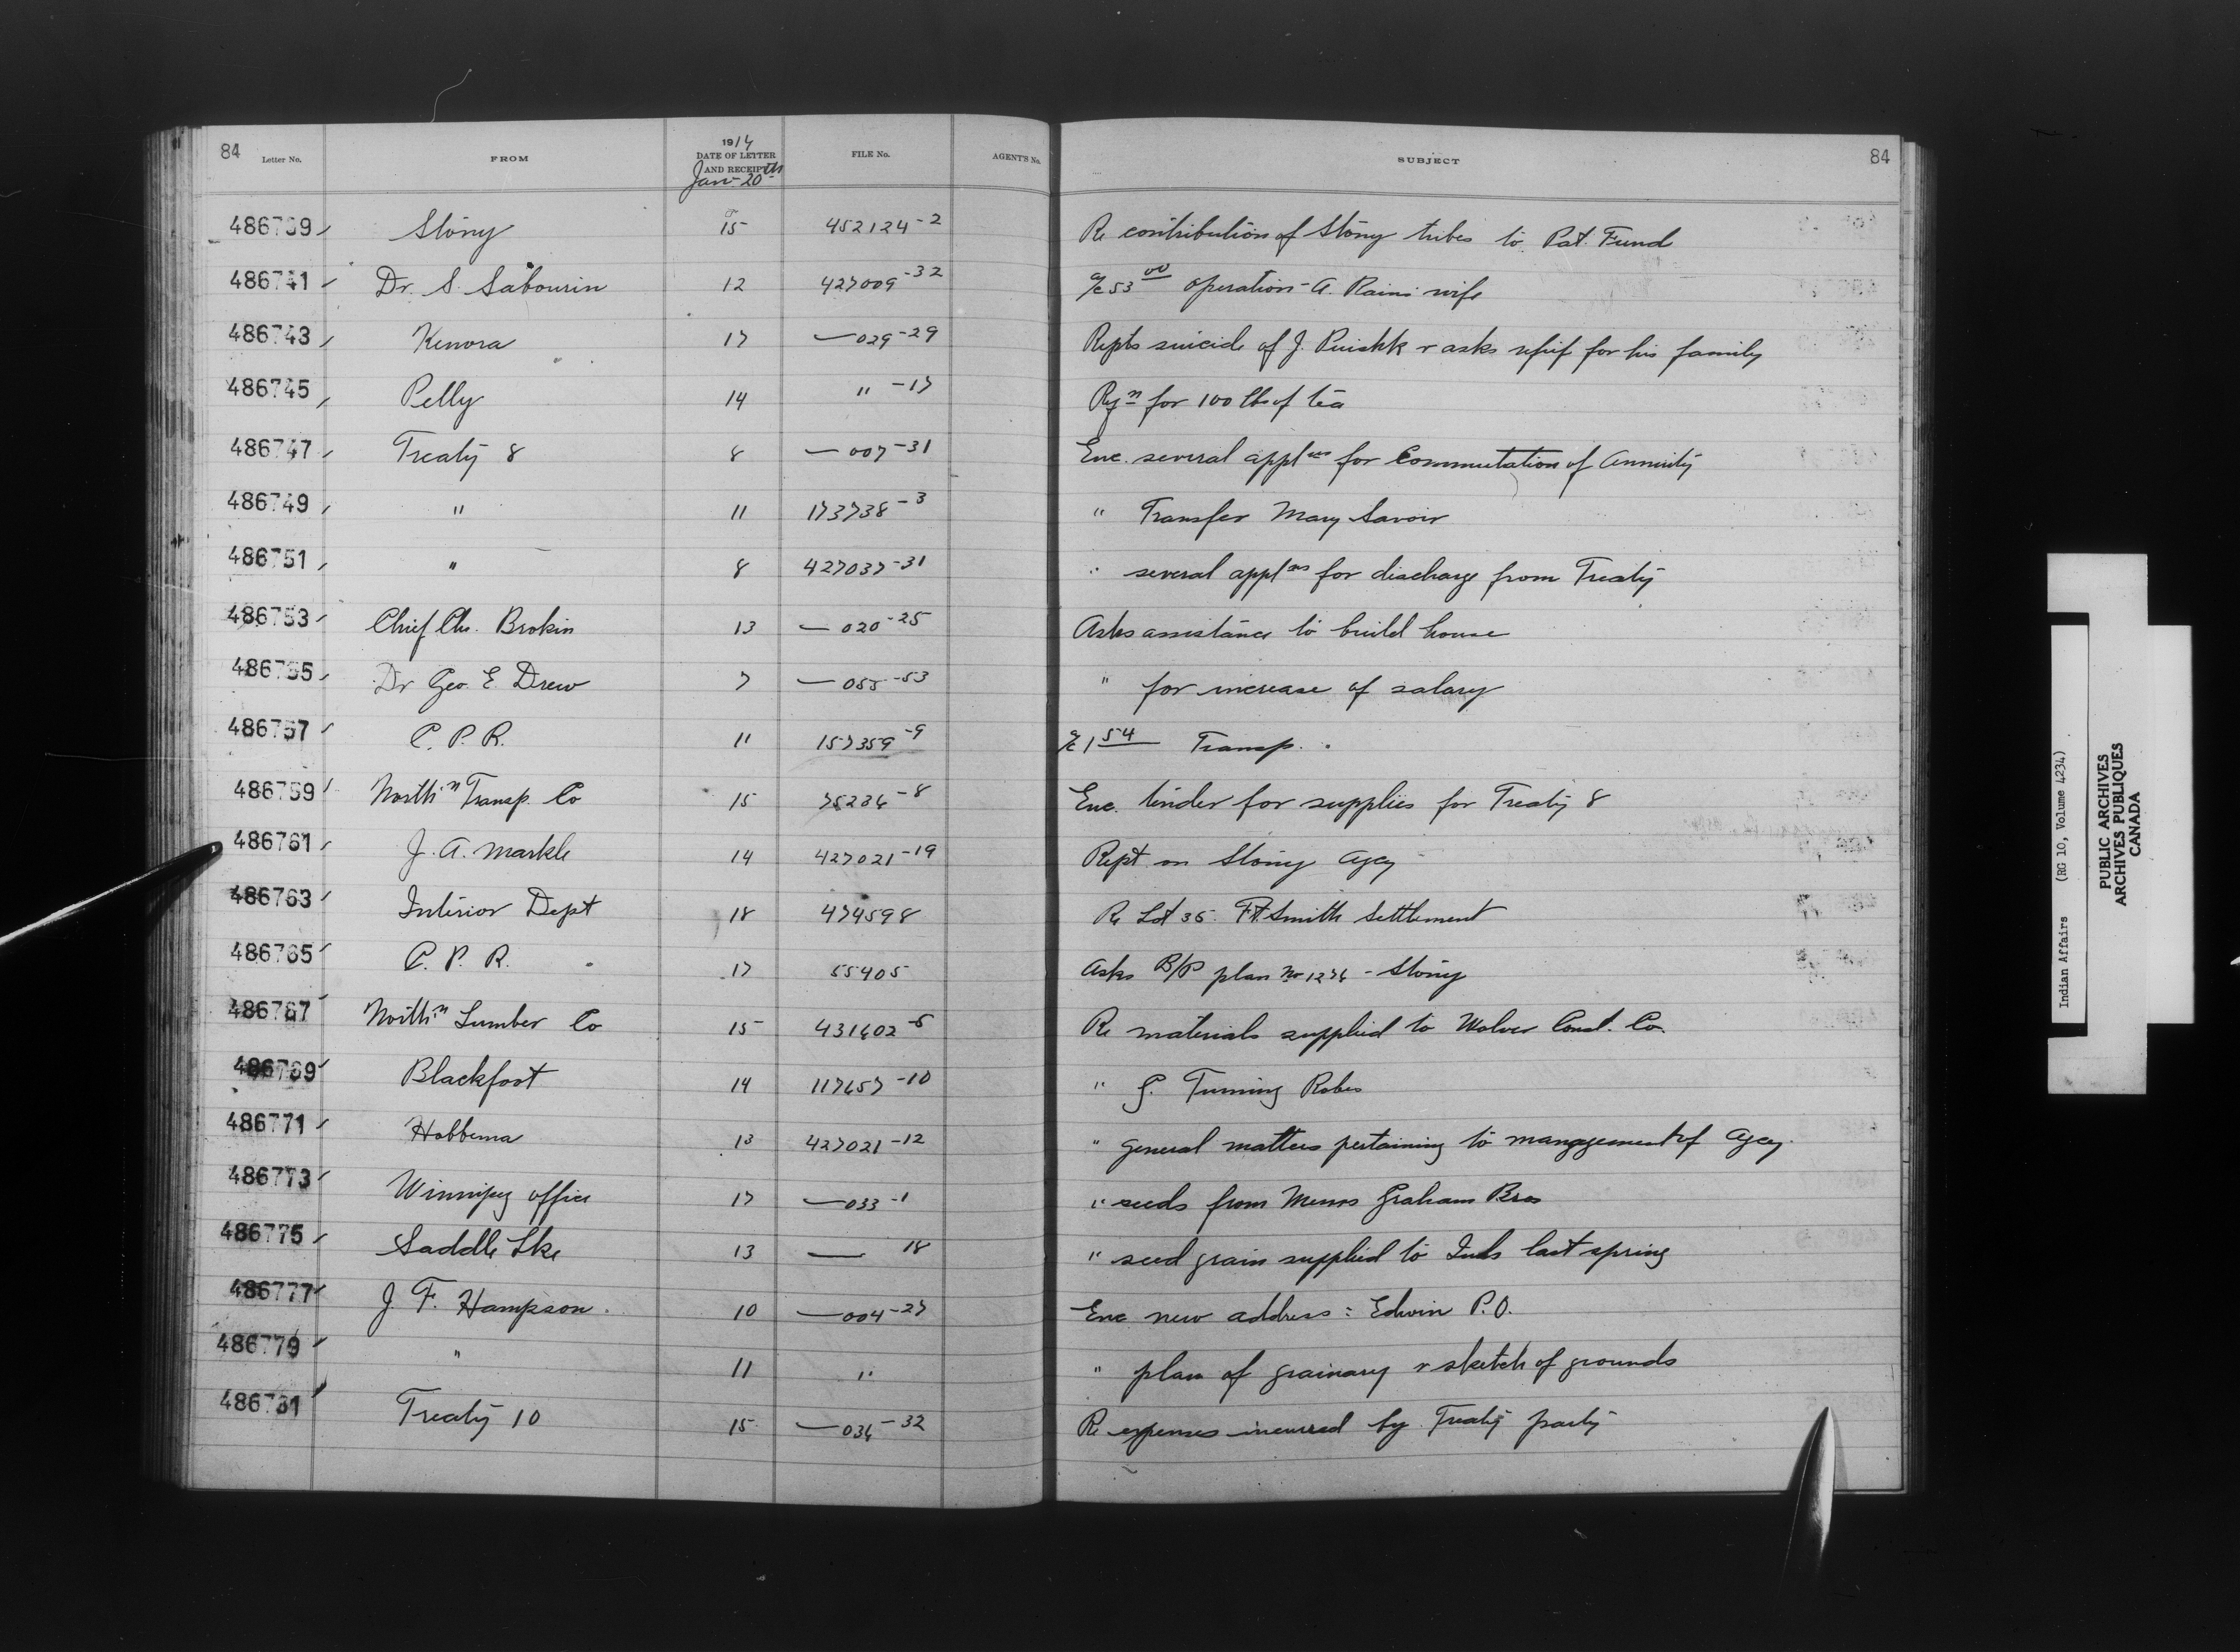 84 Letter No. FROM 1914 DATE OF LETTER AND RECEIPT Jan 20th FILE No. AGENT'S No. SUBJECT 84
486739 Stony 15 452124-2 Re contribution of Stony tribes to Pat. Fund
486741 Dr. S. Sabourin 12 427009-32 a/c 53 00 operation - A. Rains wife
486743 Kenora 17 — 029-29 Repts suicide of J. & asks relief for his family
486745 Pelly 14 " -17 Rqn for 100 lbs of tea
486747 Treaty 8 8 — 007-31 Enc. several applns for Commutation of Annuity
486749 " 11 173738-3 " Transfer Mary Savoir
486751 " 8 427037-31 " several applns for discharge from Treaty
486753 Chief Chs. Brokin 13 — 020-25 Asks assistance to build house
486755 Dr Geo. E. Drew 7 — 055-53 " for increase of salary
486757 C. P. R. 11 157359-9 a/c 1 54 Transp.
486759 Northn Transp. Co 15 75236-8 Enc. tender for supplies for Treaty 8
486761 J. A. Markle 14 427021-19 Rept on Stony Agcy
486763 Interior Dept 18 474598 Re Lot 35 Ft. Smith Settlement
486765 C. P. R. 17 55405 Asks B/P plan No 1276 - Stony
486767 Northn Lumber Co 15 431602-5 Re materials supplied to Const. Co.
486769 Blackfoot 14 117657-10 " G. Turning Robes
486771 Hobbema 13 427021-12 " general matters pertaining to management of Agcy.
486773 Winnipeg office 17 — 033-1 " seeds from Messrs Graham Bros
486775 Saddle Lke 13 — 18 " seed grain supplied to Inds last spring
486777 J. F. Hampson. 10 — 004-27 Enc new address: Edwin P.O.
486779 " 11 " " plan of grainary & sketch of grounds
486781 Treaty 10 15 — 036-32 Re expenses incurred by Treaty party
Indian Affairs (RG 10, Volume 4234)
PUBLIC ARCHIVES
ARCHIVES PUBLIQUES
CANADA